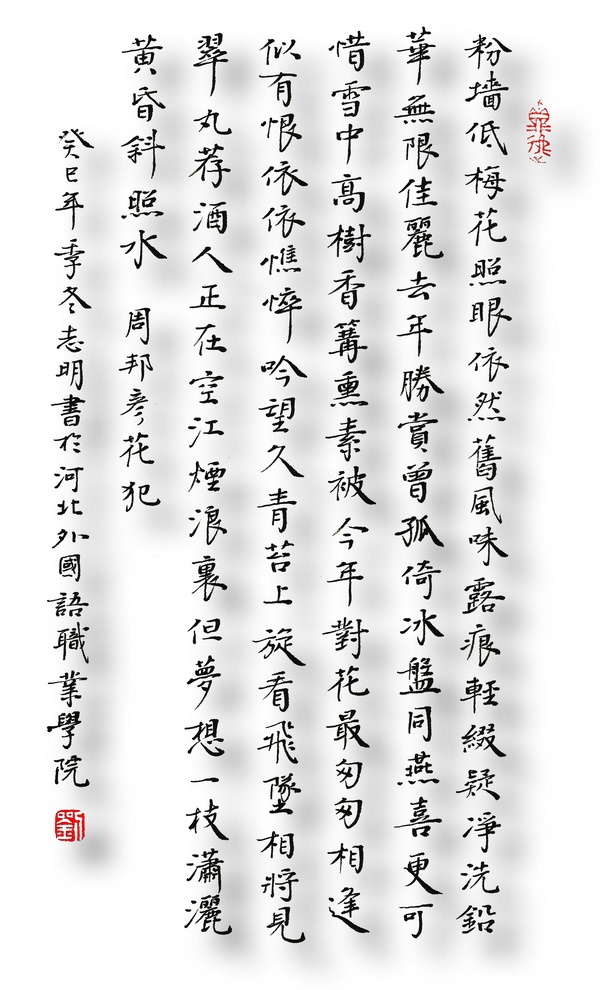 粉墻低梅花照眼依然舊風味露痕輕綴疑凈洗鉛
華無限佳麗去年勝賞曾孤倚冰盤同燕喜更可
惜雪中高樹香篝熏素被今年對花最匆匆相逢
似有恨依依憔悴吟望久青苔上旋看飛墜相將見
翠丸荐酒人正在空江煙浪裏但夢想一枝瀟灑
黄昏斜照水 周邦彦花犯
癸巳年季冬志明書於河北外國語職業學院
劉